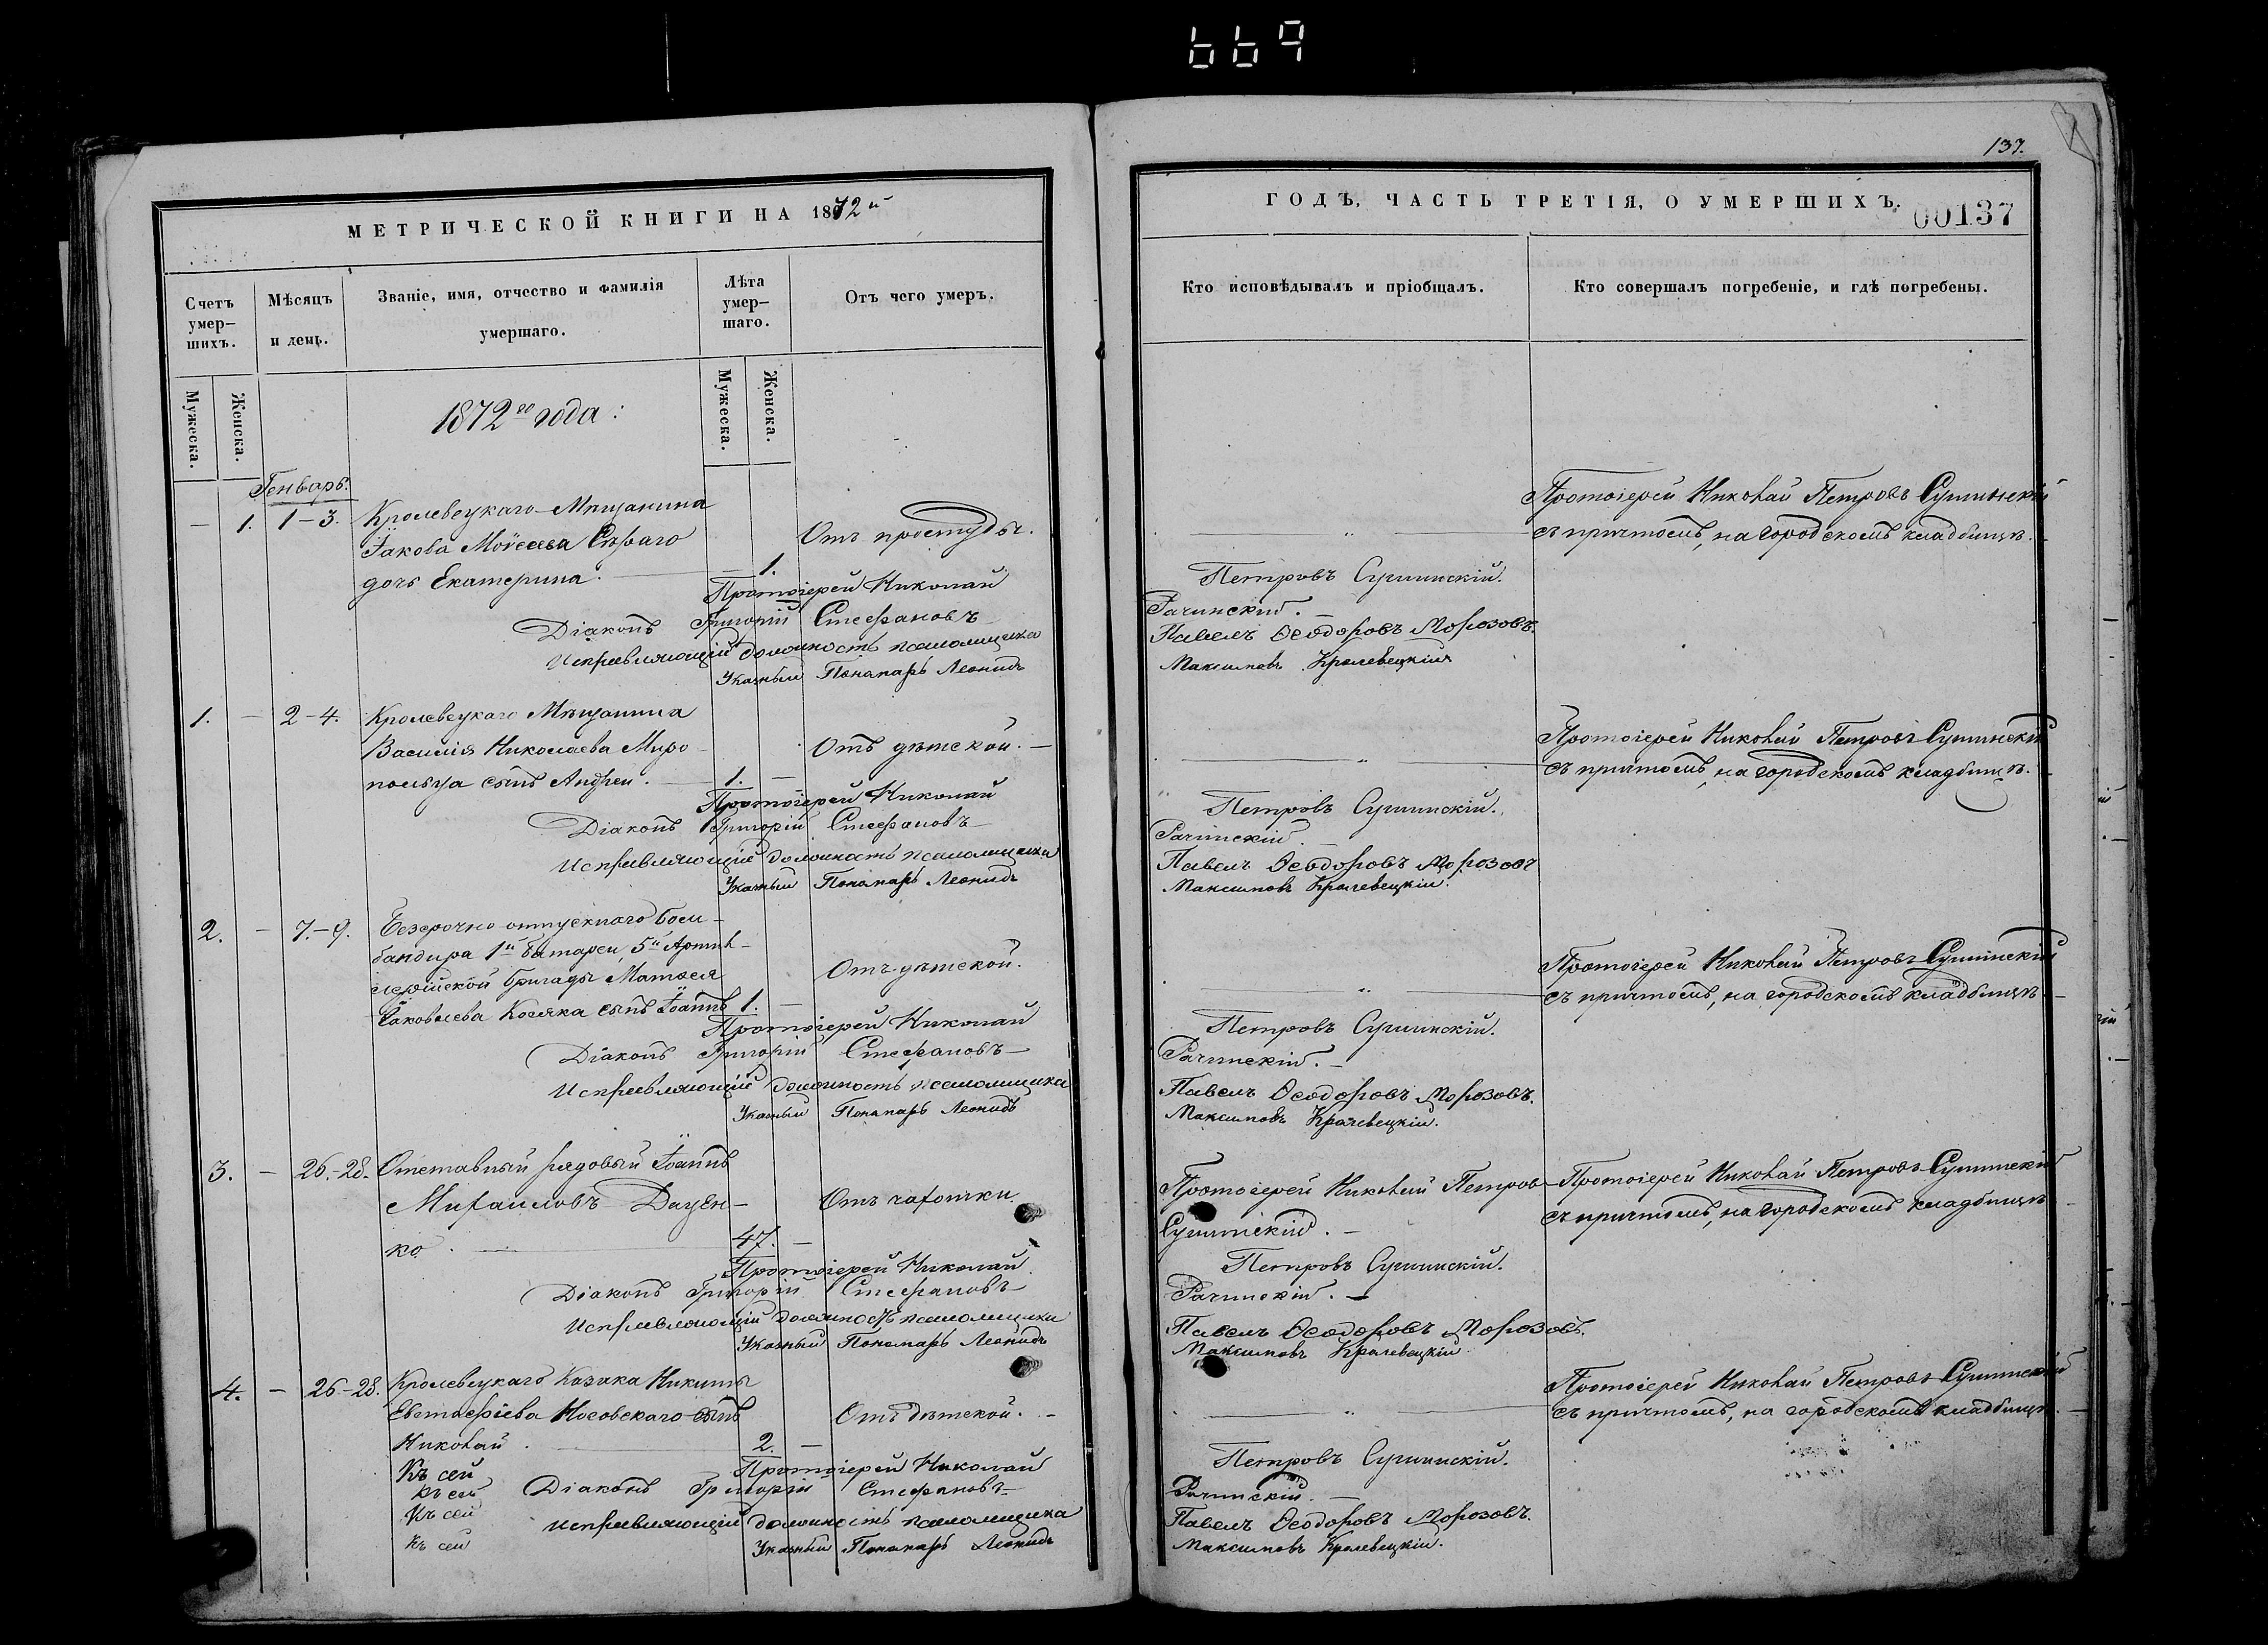 669
МЕТРИЧЕСКОЙ КНИГИ НА 1872й
Счетъ умер-
шихъ.
Мѣсяцъ
и день.
Званіе, имя, отчество и фамилія
умершаго.
Лѣта
умер-
шаго.
Отъ чего умеръ.
Мужеска.
Женска.
1872го года:
Мужеска.
Женска.
Генварь.
— 1. 1-3. Кролевецкаго Мѣщанина
Іакова Моѵсеева Сѣраго
дочь Екатерина. — 1. Отъ простуды.
Протоіерей Николай
Діаконъ Григорій Стефановъ
Исправляющій должность псаломщика
Указный Понамарь Леонидъ
1. — 2-4. Кролевецкаго Мѣщанина
Василія Николаева Миро-
польца сынъ Андрей. 1. — Отъ дѣтской. —
Протоіерей Николай
Діаконъ Григорій Стефановъ
Исправляющій должность псаломщика
Указный Понамарь Леонидъ
2. — 7.-9. Безсрочно-отпускнаго бом-
бандира 1й батареи, 5й Артил-
лерійской бригады Матѳея
Іаковлева Косяка сынъ Іоаннъ 1. — Отъ дѣтской.
Протоіерей Николай
Діаконъ Григорій Стефановъ
Исправляющій должность псаломщика
Указный Понамарь Леонидъ
3. — 26.-28. Отставный рядовый Іоаннъ
Михаиловъ Дацен-
ко. 47. — Отъ чахотки.
Протоіерей Николай
Діаконъ Григорій Стефановъ
Исправляющій должность псаломщика
Указный Понамарь Леонидъ
4. — 26-28. Кролевецкаго Козака Никиты
Евстафіева Носовскаго сынъ
Николай. 2. — Отъ дѣтской. —
Къ сей Протоіерей Николай
Къ сей Діаконъ Григорій Стефановъ
Къ сей Исправляющій должность псаломщика
Къ сей Указный Понамарь Леонидъ
137.
ГОДЪ, ЧАСТЬ ТРЕТІЯ, О УМЕРШИХЪ.
00137
Кто исповѣдывалъ и пріобщалъ.
Кто совершалъ погребеніе, и гдѣ погребены.
Протоіерей Николай Петровъ Сушинскій
съ причтомъ, на городскомъ кладбищѣ.
Петровъ Сушинскій.
Рачинскій. —
Павелъ Ѳеодоровъ Морозовъ.
Максимовъ Кролевецкій
Протоіерей Николай Петровъ Сушинскій
съ причтомъ, на городскомъ кладбищѣ.
Петровъ Сушинскій.
Рачинскій.
Павелъ Ѳеодоровъ Морозовъ
Максимовъ Кролевецкій.
Протоіерей Николай Петровъ Сушинскій
съ причтомъ, на городскомъ кладбищѣ. —
Петровъ Сушинскій.
Рачинскій. —
Павелъ Ѳеодоровъ Морозовъ.
Максимовъ Кролевецкій.
Протоіерей Николай Петровъ
Сушинскій. —
Протоіерей Николай Петровъ Сушинскій
съ причтомъ, на городскомъ кладбищѣ
Петровъ Сушинскій.
Рачинскій. —
Павелъ Ѳеодоровъ Морозовъ.
Максимовъ Кролевецкій
Протоіерей Николай Петровъ Сушинскій
съ причтомъ, на городскомъ кладбищѣ. —
Петровъ Сушинскій.
Рачинскій. —
Павелъ Ѳеодоровъ Морозовъ.
Максимовъ Кролевецкій.